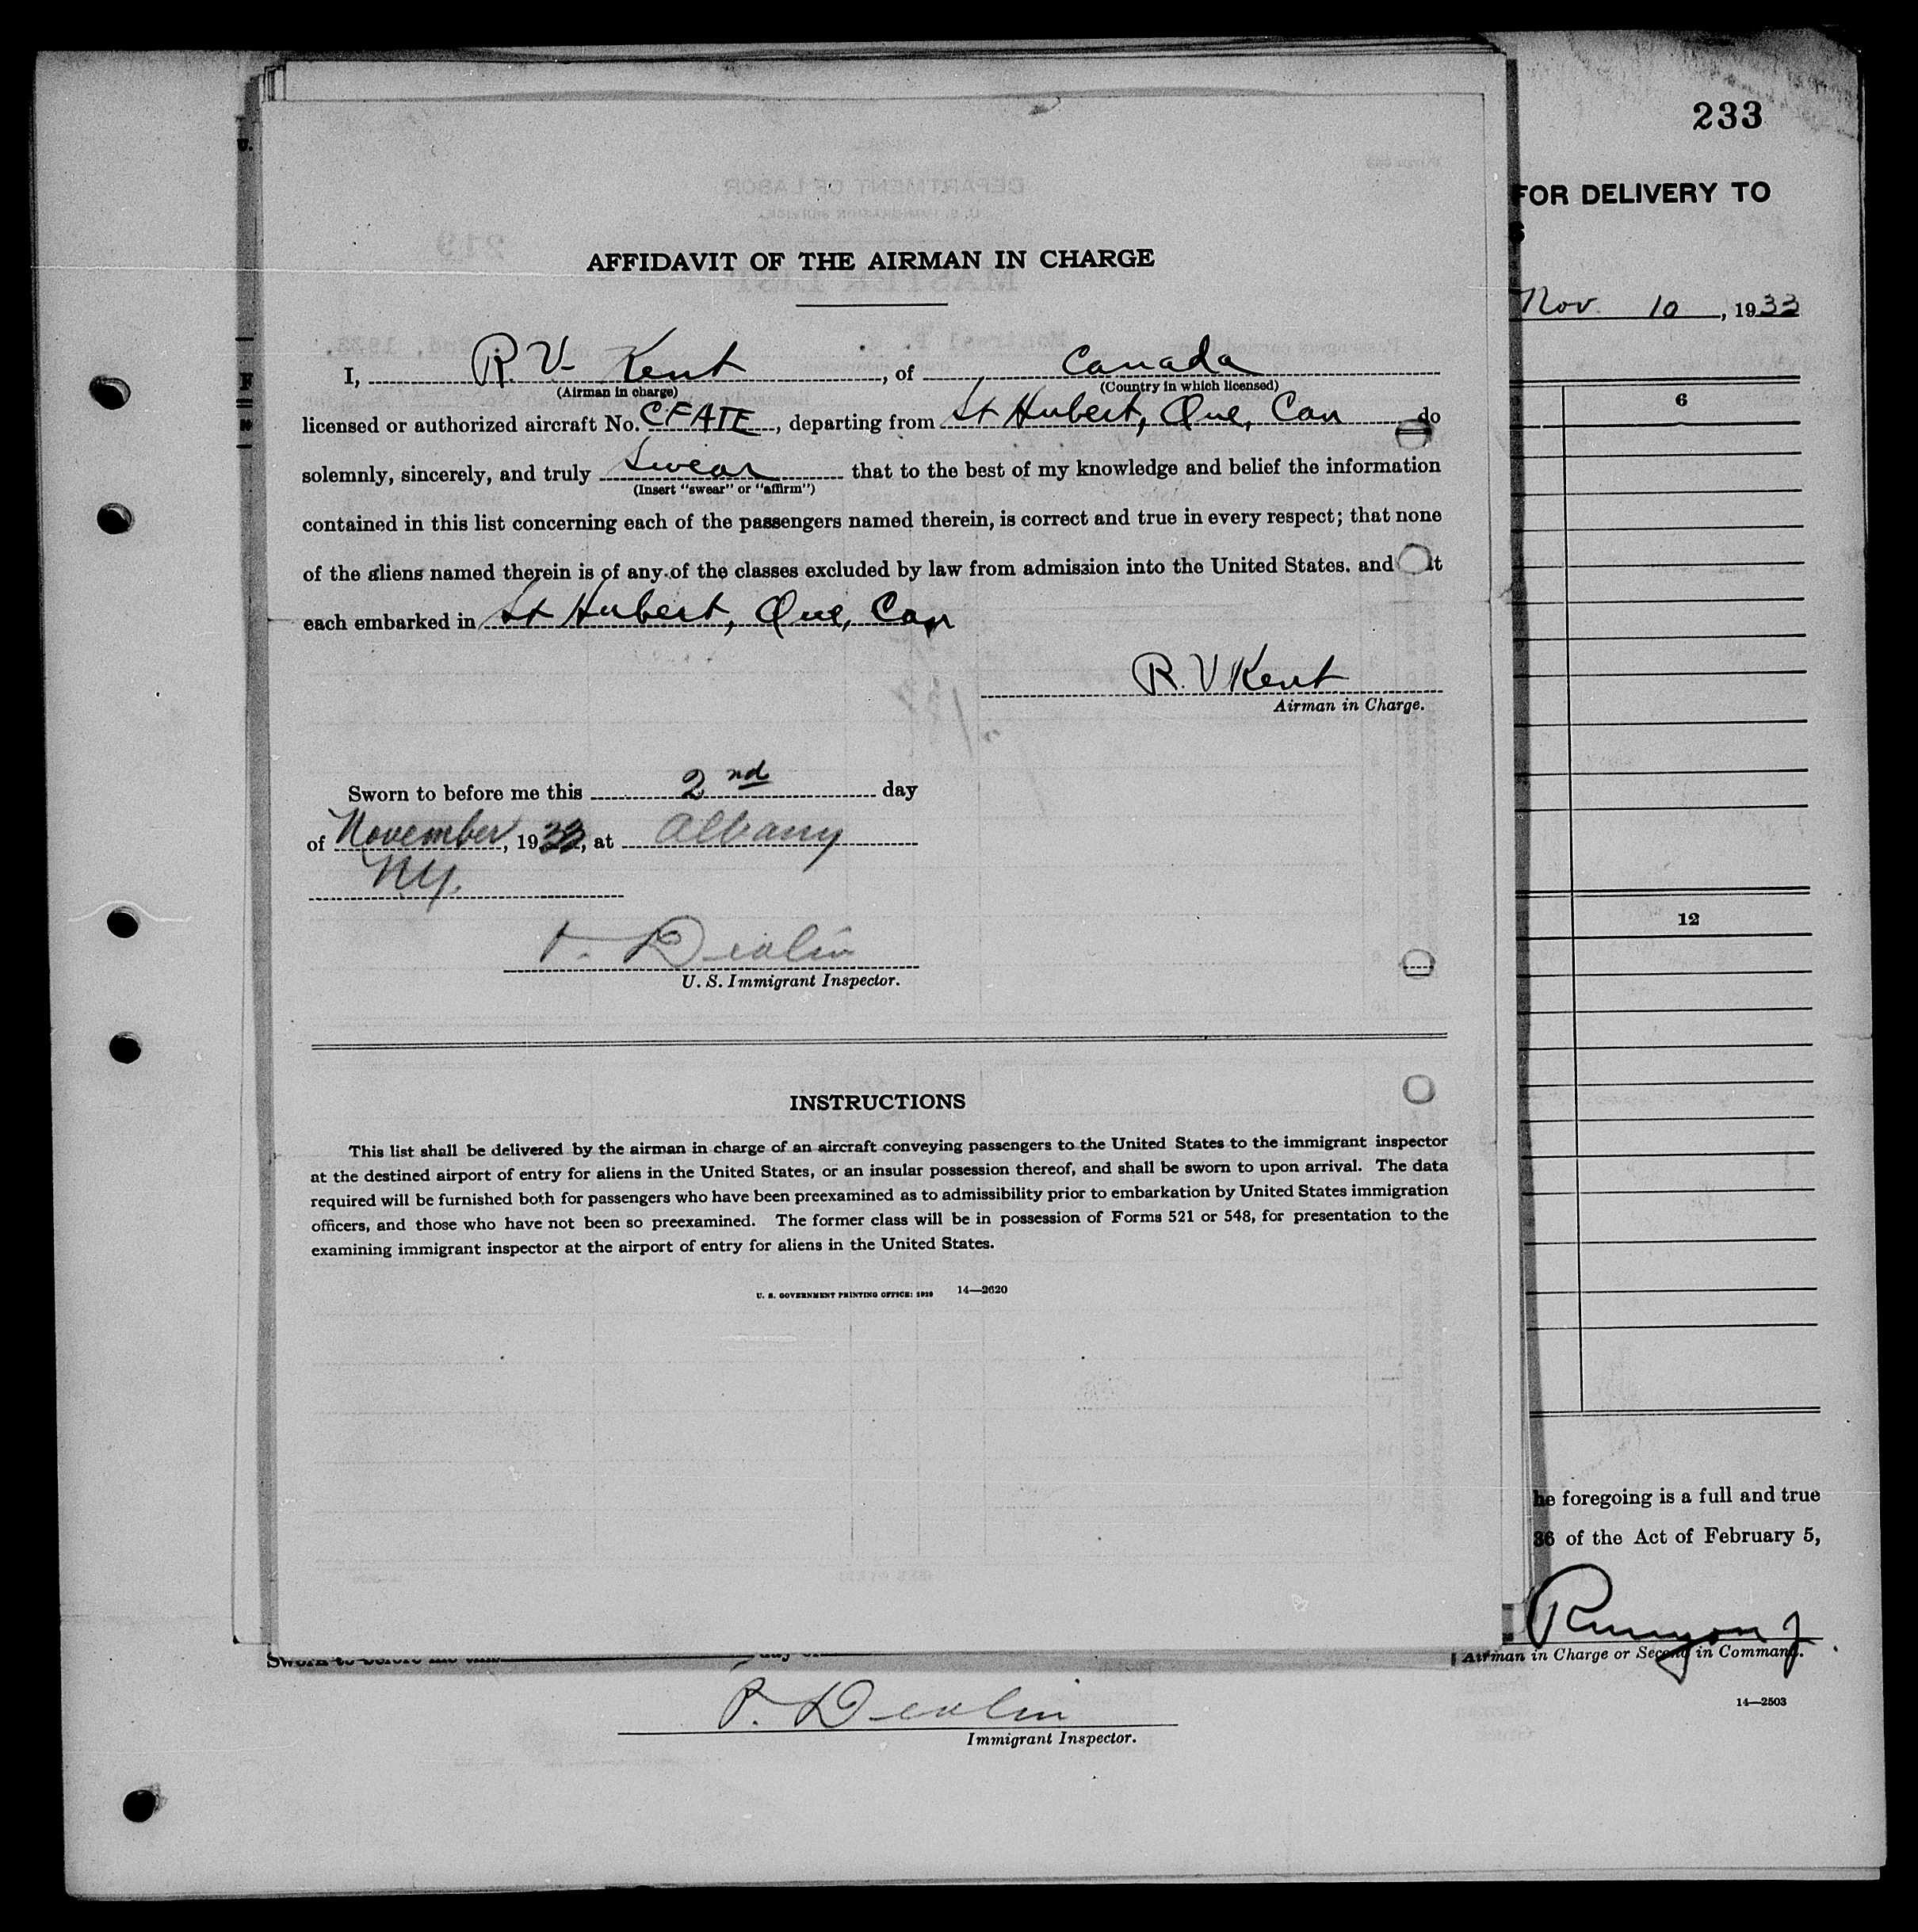 233
FOR DELIVERY TO
Nov. 10, 1933
6
12
AFFIDAVIT OF THE AIRMAN IN CHARGE
I, R. V. Kent, of Canada
(Airman in charge) (Country in which licensed)
licensed or authorized aircraft No. CFATE, departing from St Hubert, Que, Can do
solemnly, sincerely, and truly swear that to the best of my knowledge and belief the information
(Insert "swear" or "affirm")
contained in this list concerning each of the passengers named therein, is correct and true in every respect; that none
of the aliens named therein is of any of the classes excluded by law from admission into the United States. and
each embarked in St Hubert, Que, Can
R. V Kent
Airman in Charge.
Sworn to before me this 2nd day
of November, 1933, at Albany
N.Y.
U. S. Immigrant Inspector.
INSTRUCTIONS
This list shall be delivered by the airman in charge of an aircraft conveying passengers to the United States to the immigrant inspector
at the destined airport of entry for aliens in the United States, or an insular possession thereof, and shall be sworn to upon arrival. The data
required will be furnished both for passengers who have been preexamined as to admissibility prior to embarkation by United States immigration
officers, and those who have not been so preexamined. The former class will be in possession of Forms 521 or 548, for presentation to the
examining immigrant inspector at the airport of entry for aliens in the United States.
U. S. GOVERNMENT PRINTING OFFICE: 1929 14—2620
he foregoing is a full and true
36 of the Act of February 5,
Runyon J
Airman in Charge or Second in Command.
14—2503
Sworn to before me this day of
Immigrant Inspector.